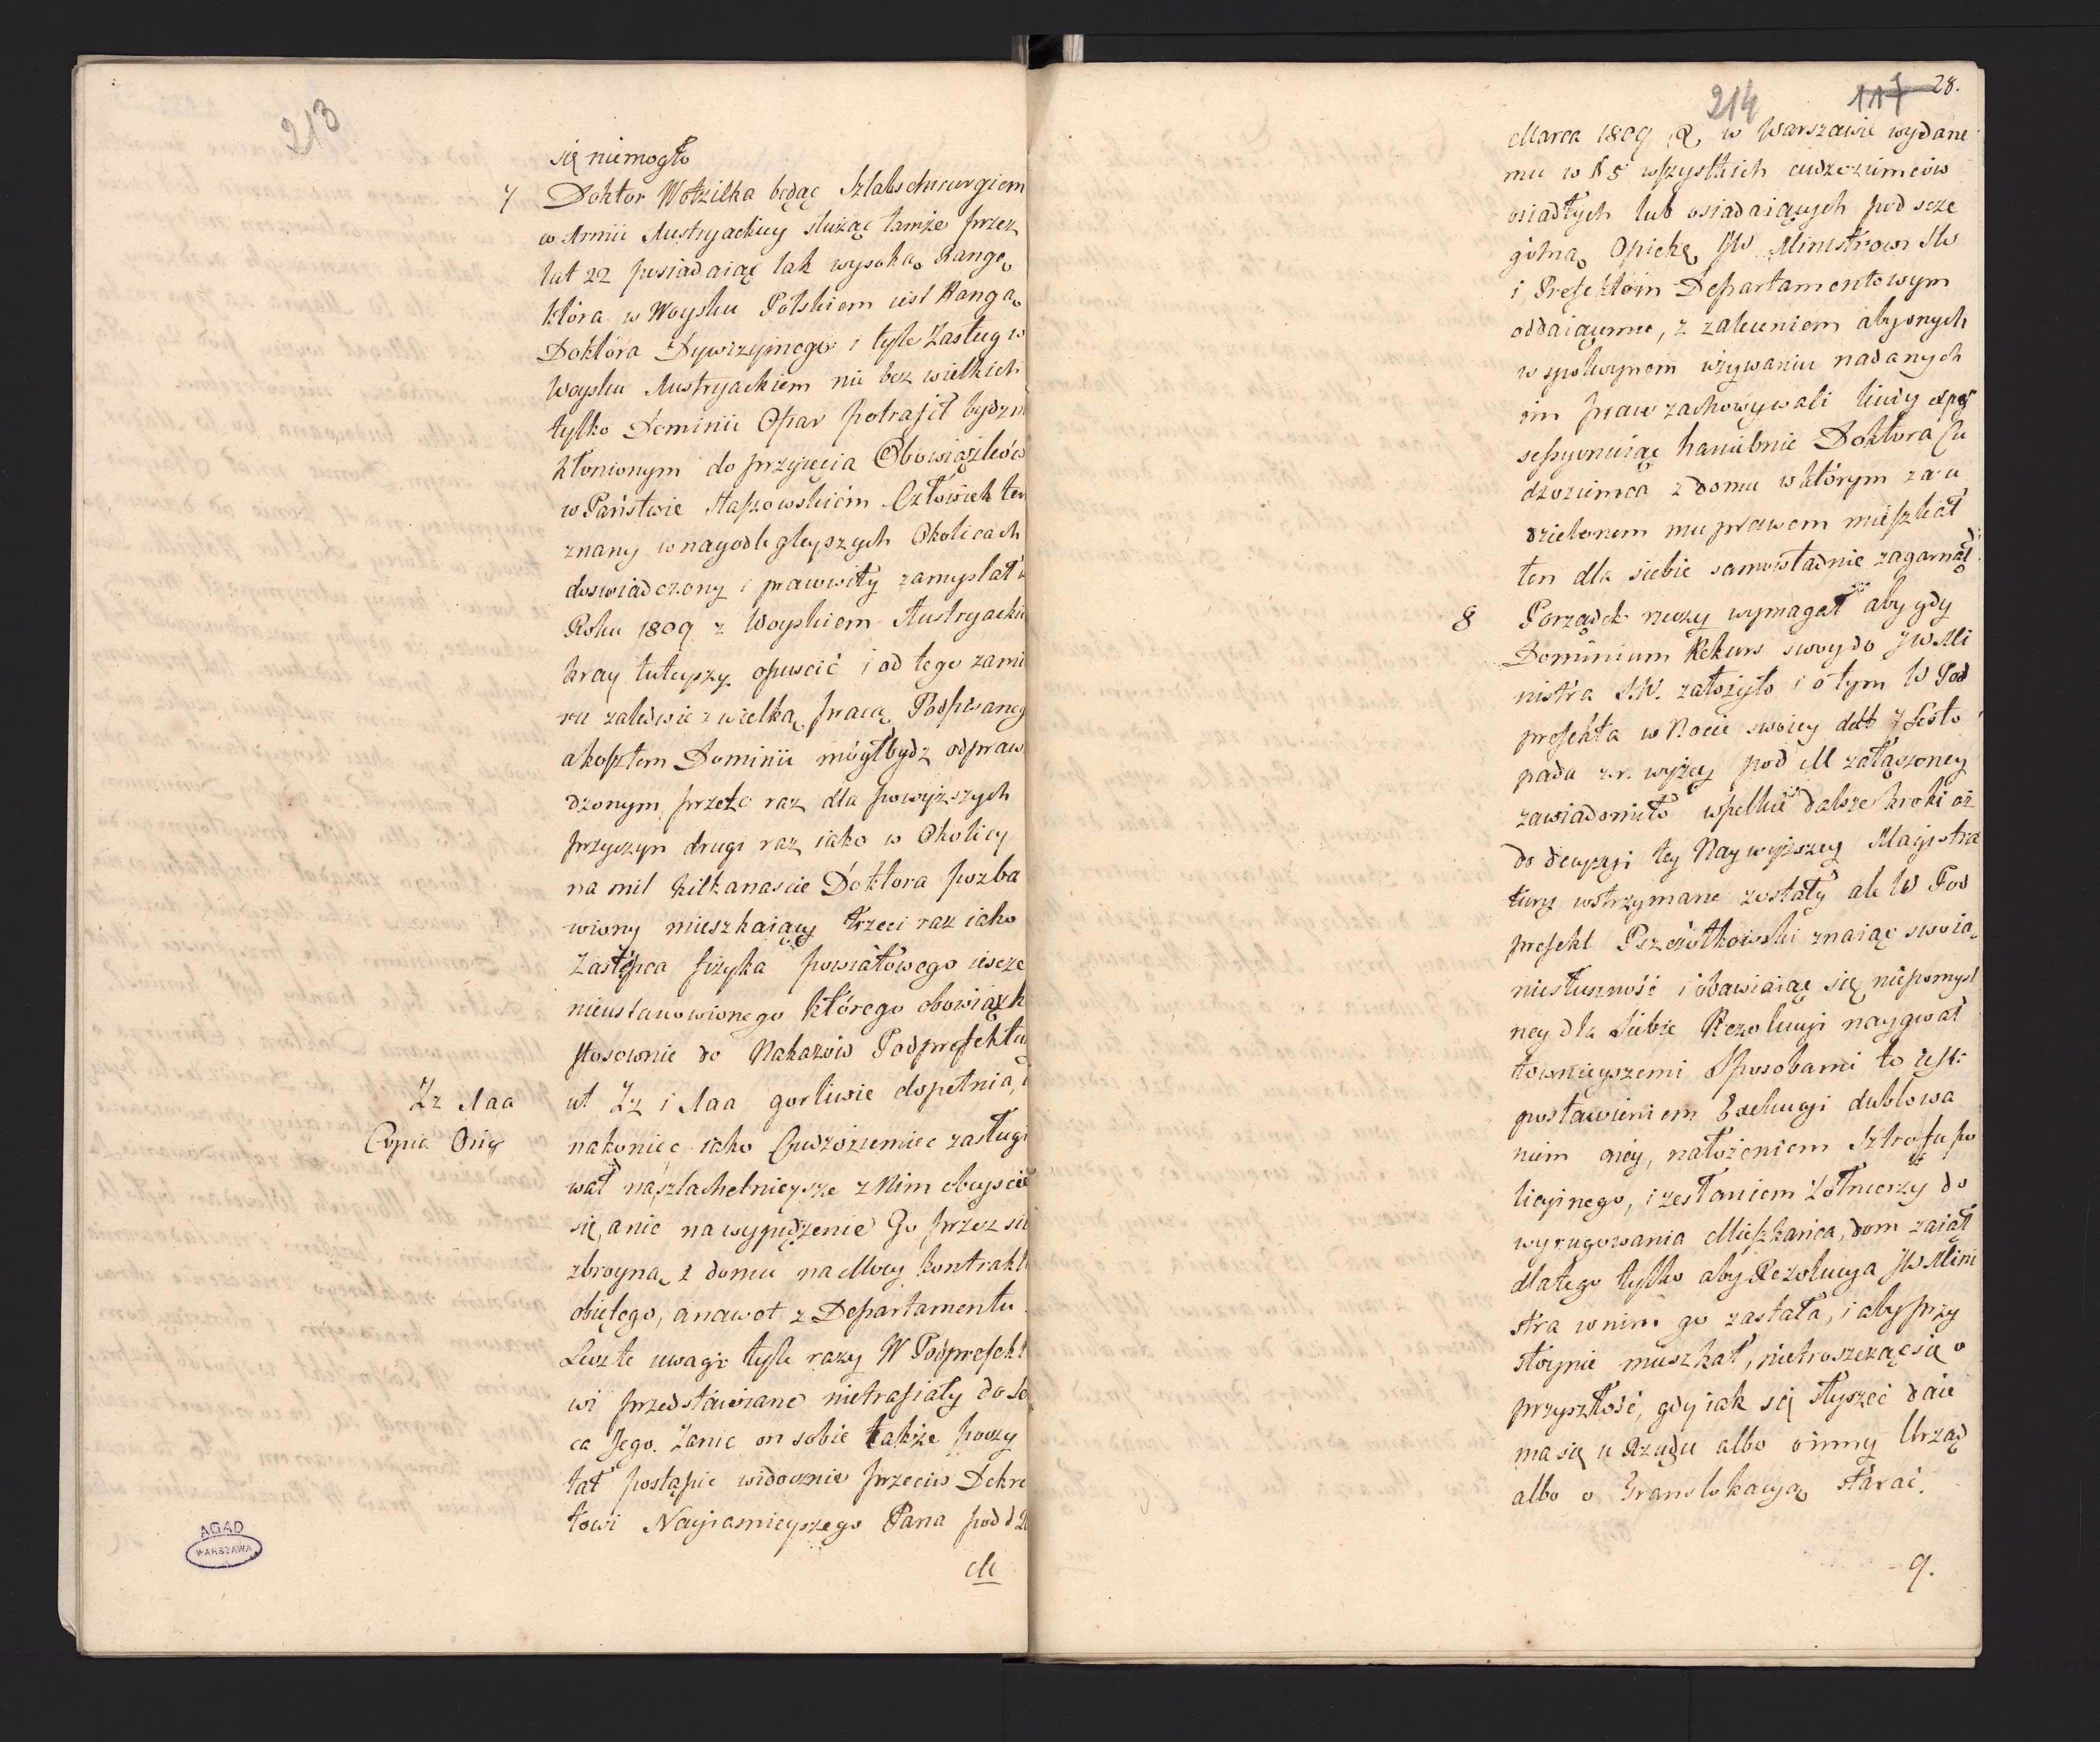 213
się niemogło
7 Doktor Wotzilka będąc Sztabschirurgiem
w Armii Austryackiey służąc tamże przez
lat 22 posiadaiąc tak wysoką Rangę
która w Woysku Polskiem iest Rangą
Doktora Dywizyinego i tyle Zasług w
Woysku Austryackiem nie bez wielkich
tylko Dominii Ofiar potrafił bydź
kłonionym do przyięcia Obowiązków
w Państwie Staszowskiém. Człowiek ten
znany w nayodlegleyszych Okolicach
doswiadczony i prawwity zamyslał w
Roku 1809 z Woyskiem Austryackie
kray tuteyszy opuscić i od tego zami
ru zaledwie z wielką pracą Podpisaneg
a kosztem Dominii mógł bydz odprow
dzonym, przeto raz dla powyższych
przyczyn drugi raz iako w Okolicy
na mil kilkanascie Doktora pozba
wiony mieszkaiący trzeci raz iako
Zastępca fizyka powiatowego iescze
nieustanowionego którego obowiązk
stosownie do Nakazów Podprefektu
Zz Aaa ut Zz i Aaa gorliwie dopełnia, i
Copia Orig nakoniec iako Cudzoziemiec zasługi
wał naszlachetnieysze z Nim obeyscie
się, a nie na wypędzenie Go przez sił
zbroyną z domu na Mocy kontrakt
obiętego, a nawet z Departamentu.
Lecz te uwagi tyle razy W Podprefekt
wi przedstawiane nietrafiały do Se
ca Jego. Zanic on sobie także poczy
tał postąpic widocznie przeciw Dekre
towi Nayiasnieyszego Pana pod d 20
M
AGAD
WARSZAWA
214 117 28.
Marca 1809 R. w Warszawie wydane
mu w § 5 wszystkich cudzoziemców
osiadłych lub osiadaiących pod szcze
gólną Opiekę JW Ministrowi SW
i Prefektóm Departamentowym
oddaiącemu, z zaleceniem aby onych
w spokoynem używaniu nadanych
im praw zachowywali kiedy expos
sessyonuiąc haniebnie Doktora Cu
dzoziemca z domu w którym za u
dzielonem mu prawem mieszkał
ten dla siebie samowładnie zagarnął
8 Porządek rzeczy wymagał aby gdy
Dominium Rekurs swoy do JW Mi
nistra S.W. założyło i o tym W Pod
prefekta w Nocie swoiey ddto 7 Listo
pada r.z. wyżey pod M załączoney
zawiadomiło wszelkie dalsze kroki aż
do decyzyi tey Naywyższey Magistra
tury wstrzymane zostały ale W Pod
prefekt Pszczółkowski znaiąc swoią
niesłuszność i obawiaiąc się niepomysl
ney dla Siebie Rezolucyi naygwał
townieyszemi Sposobami to iest:
postawieniem Exekucyi dublowa
niem oney, nałożeniem Sztrofu po
licyinego, i zesłaniem Żołnierzy do
wyrugowania Mieszkańca, dom zaiął
dlatego tylko aby Rezolucya JW Mini
stra w nim go zastała, i aby przy
stoynie mieszkał, nietroszcząc się o
przyszłość, gdy iak się słyszeć daie
ma się u Rządu albo o inny Urząd
albo o Translokacyą starać.
9.